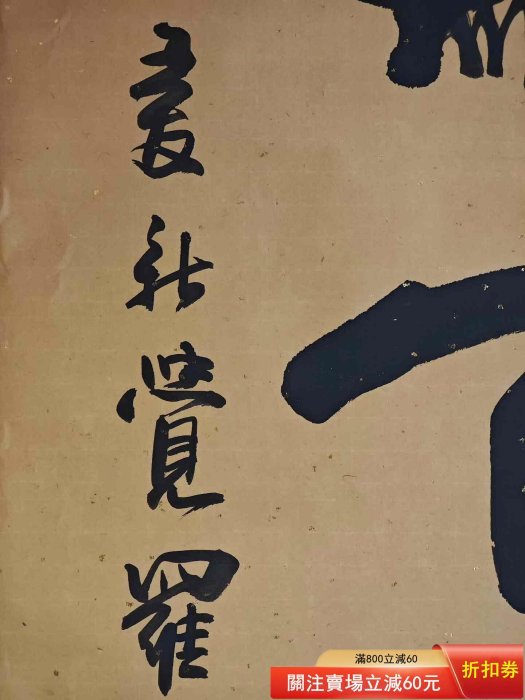 愛新覺羅
滿800立減60
關注賣場立減60元
折扣券